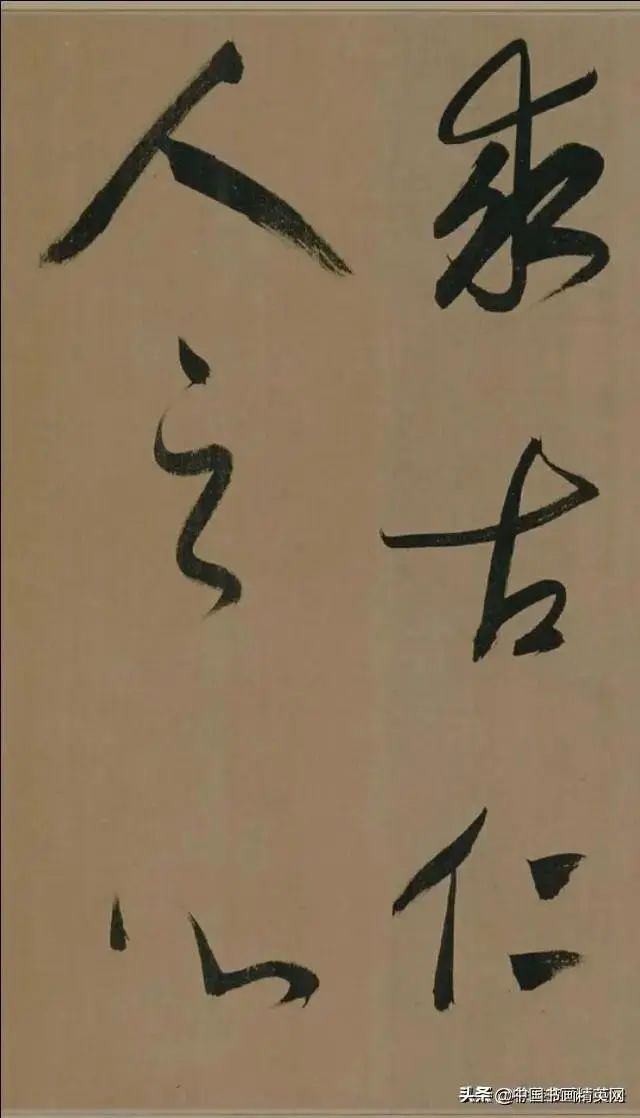 求古仁
人之心
头条 @中国书画精英网